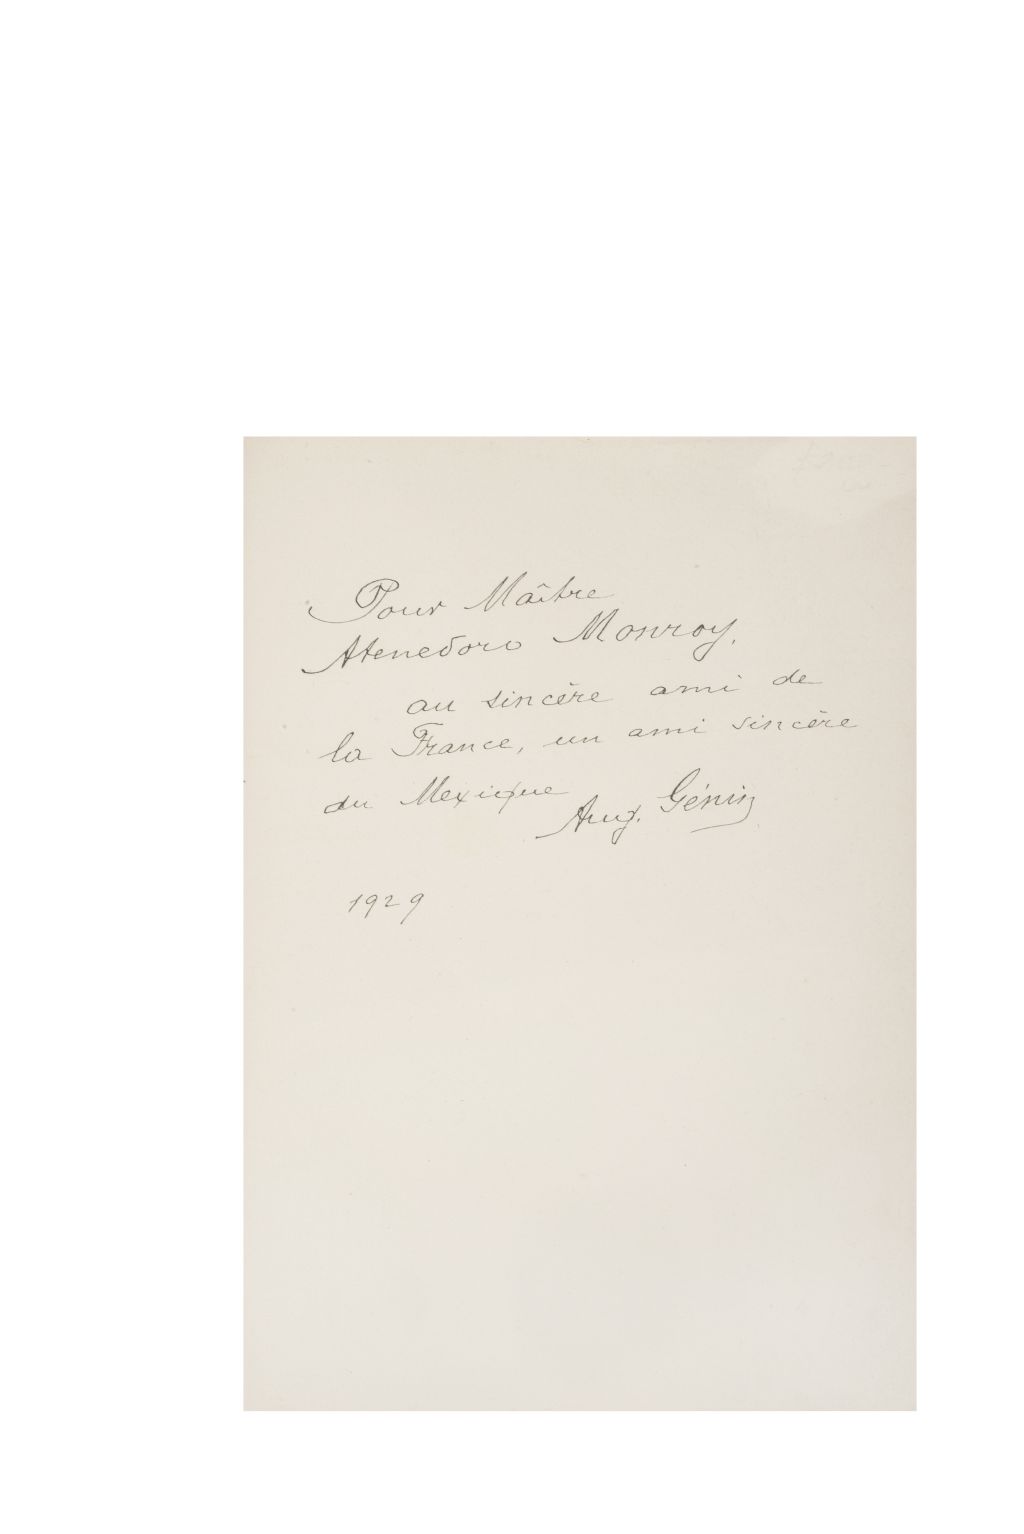 Pour Maître
Atenedoro Monroy,
au sincère ami de
la France, un ami sincère
du Mexique
Aug. Génin
1929